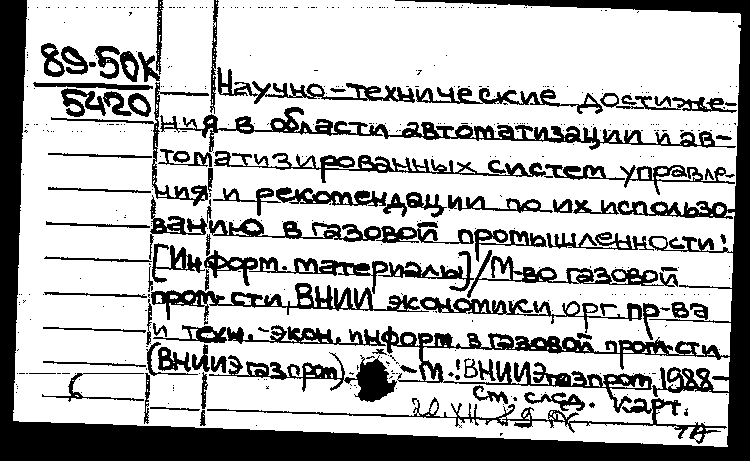 89-50К
5420
Научно-технические достиже-
ния в области автоматизации и ав-
томатизированных систем управле-
ния и рекомендации по их использо-
ванию в газовой промышленности:
[Информ. материалы] / М-во газовой
пром-сти, ВНИИ экономики, орг. пр-ва
и техн.-экон. информ. в газовой пром-сти
(ВНИИЭгазпром). -М.: ВНИИЭгазпром, 1988-
см. след. карт.
20.XII.89